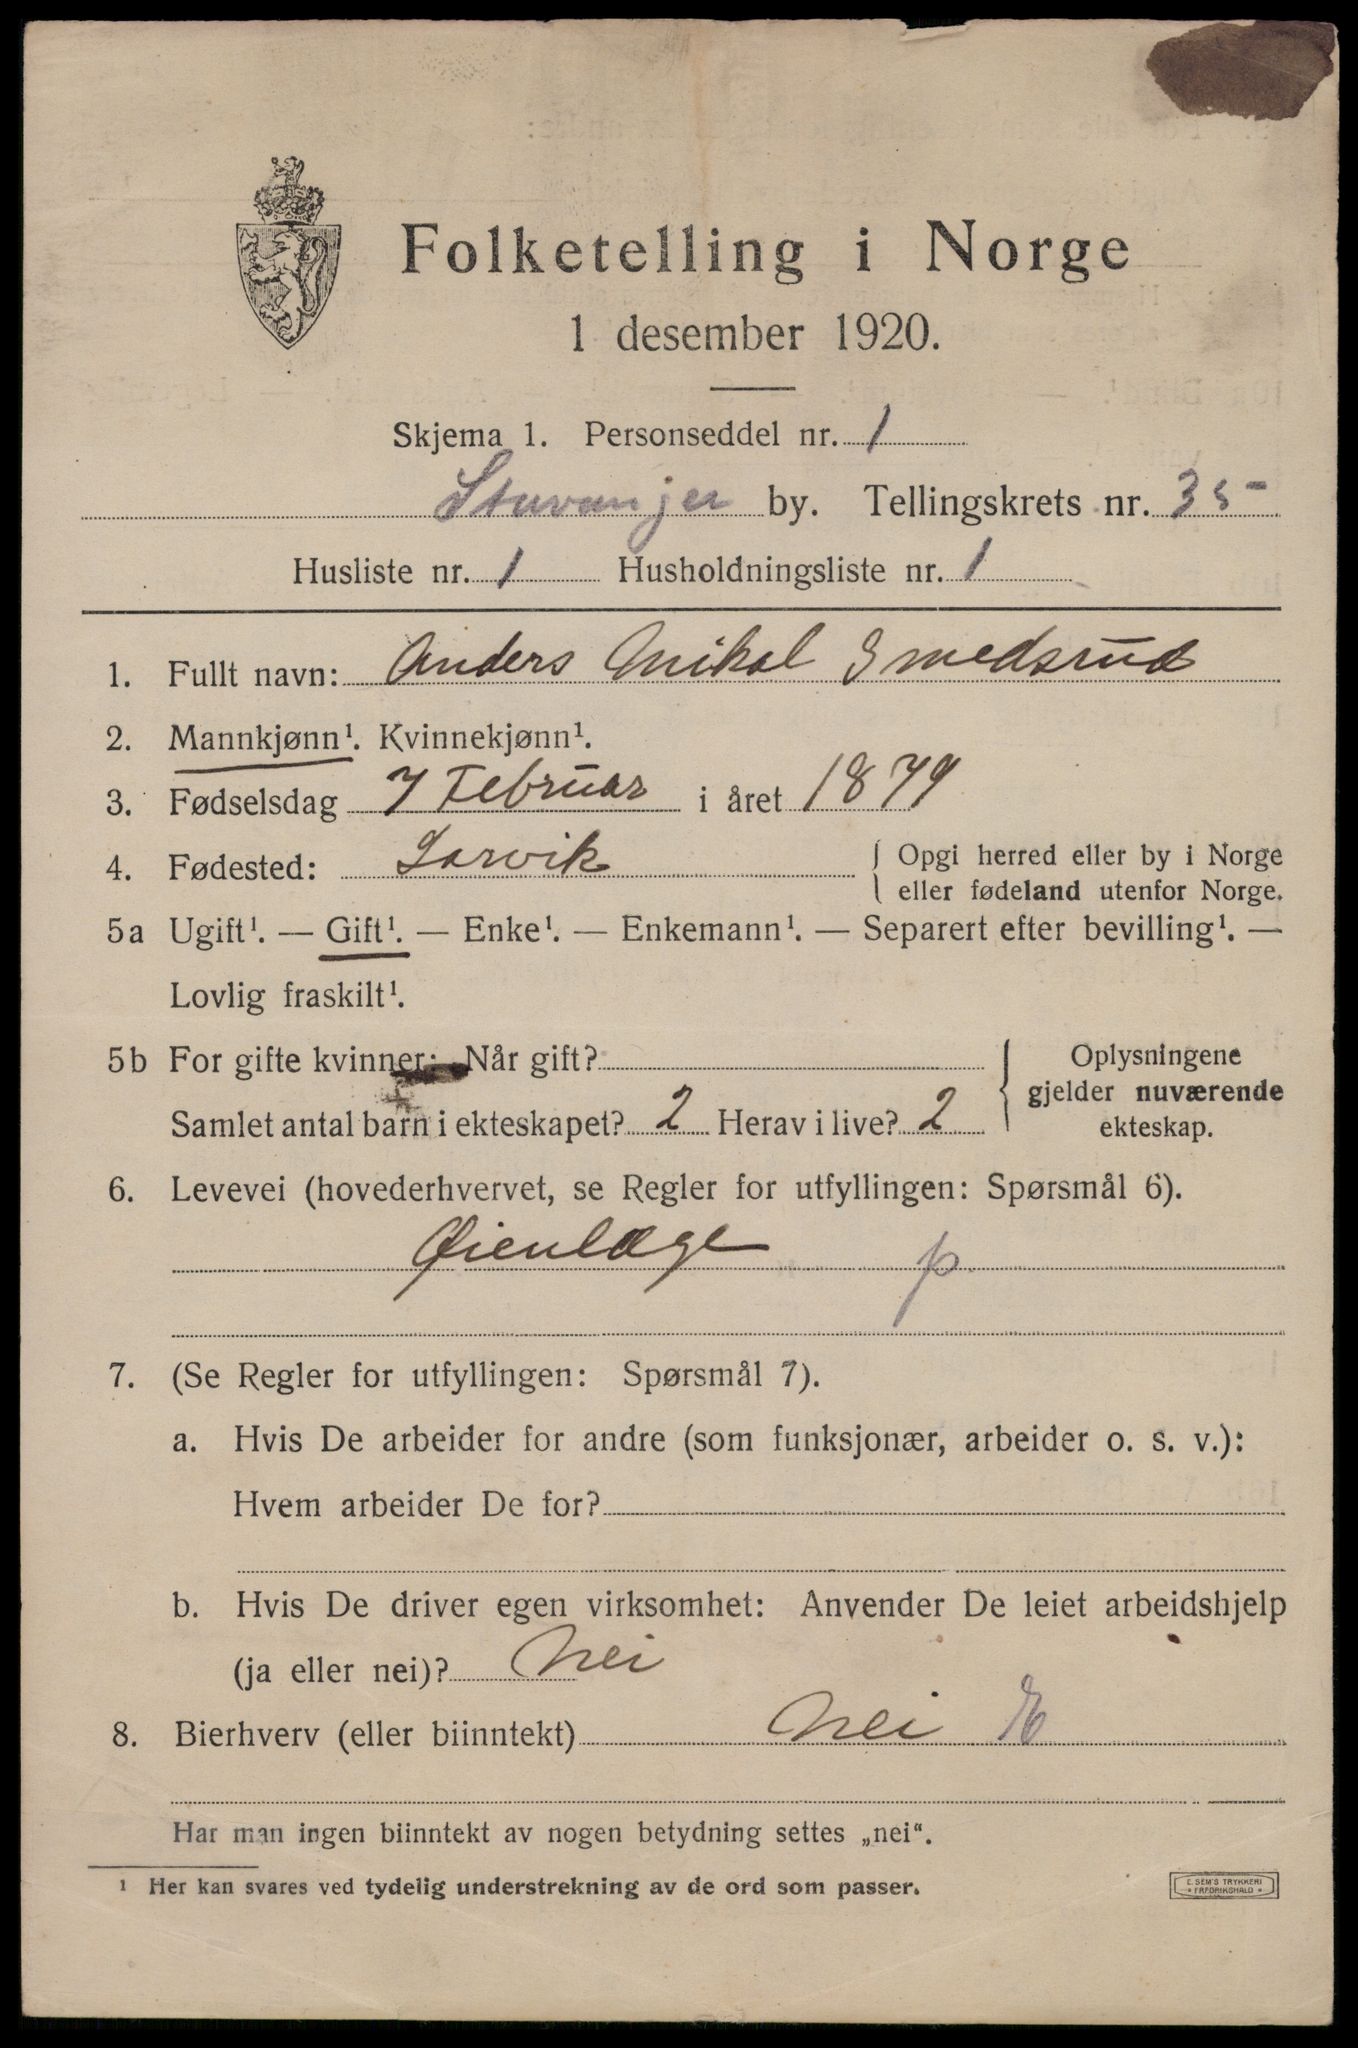 Folketelling i Norge
1 desember 1920.
Skjema 1. Personseddel nr. 1
Stavanger by. Tellingskrets nr. 35
Husliste nr. 1 Husholdningsliste nr. 1
1. Fullt navn: Anders Mikal Smedsrud
2. Mannkjønn¹. Kvinnekjønn¹.
3. Fødselsdag 7 Februar i året 1879
4. Fødested: Larvik { Opgi herred eller by i Norge
eller fødeland utenfor Norge.
5a Ugift¹. — Gift¹. — Enke¹. — Enkemann¹. — Separert efter bevilling¹. —
Lovlig fraskilt¹.
5b For gifte kvinner: Når gift?
Samlet antal barn i ekteskapet? 2 Herav i live? 2
Oplysningene
gjelder nuværende
ekteskap.
6. Levevei (hovederhvervet, se Regler for utfyllingen: Spørsmål 6).
Øienlæge p.
7. (Se Regler for utfyllingen: Spørsmål 7).
a. Hvis De arbeider for andre (som funksjonær, arbeider o. s. v.):
Hvem arbeider De for?
b. Hvis De driver egen virksomhet: Anvender De leiet arbeidshjelp
(ja eller nei)? Nei
8. Bierhverv (eller biinntekt) Nei
Har man ingen biinntekt av nogen betydning settes „nei“.
¹ Her kan svares ved tydelig understrekning av de ord som passer.
E. SEM'S TRYKKERI
* FREDRIKSHALD *